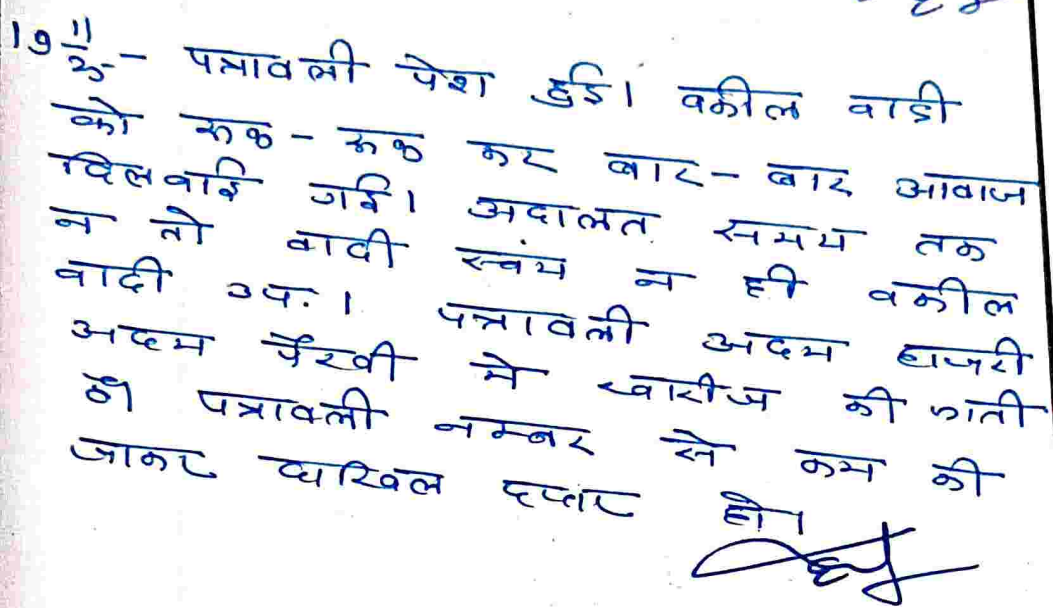 19 11 - पत्रावली पेश हुई। वकील वादी
को रूक - रूक कर बार - बार आवाज
दिलवाई गई। अदालत समय तक
न तो वादी स्वंय न ही वकील
वादी उप.। पत्रावली अदम हाजरी
अदम पैरवी मे खारीज की जाती
है। पत्रावली नम्बर से कम की
जाकर दाखिल दफ्तर हो।